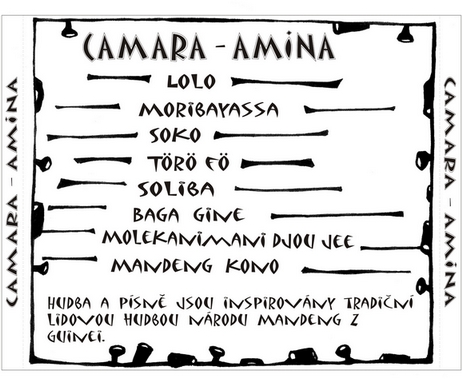 CAMARA - AMINA
LOLO
MORIBAYASSA
SOKO
TÖRÖ FÖ
SOLIBA
BAGA GINE
MOLEKANIMANI DJOU JEE
MANDENG KONO
HUDBA A PÍSNĚ JSOU INSPIROVÁNY TRADIČNÍ
LIDOVOU HUDBOU NÁRODU MANDENG Z
GUINEI.
CAMARA - AMINA
CAMARA - AMINA